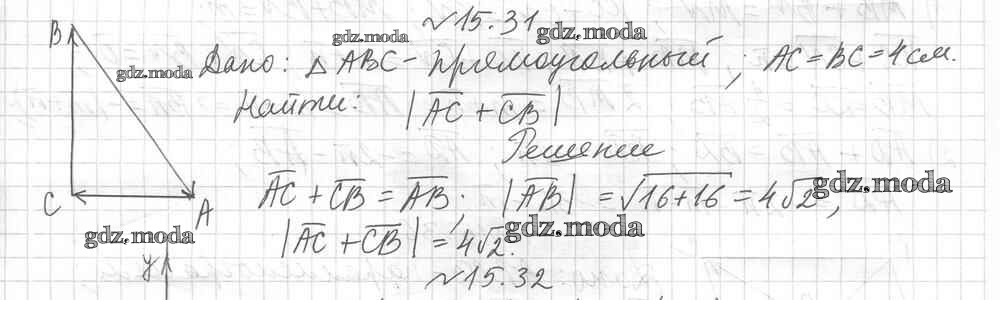 №15.31
B gdz.moda gdz.moda
gdz.moda Дано: △ABC - прямоугольный; AC = BC = 4 см.
Найти: |AC + CB|
Решение
AC + CB = AB; |AB| = √16+16 = 4√2; gdz.moda
C A
gdz.moda |AC + CB| = 4√2. gdz.moda
y №15.32